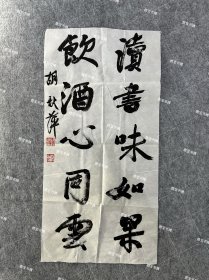 讀書味如果
飲酒心同雲
胡秋萍